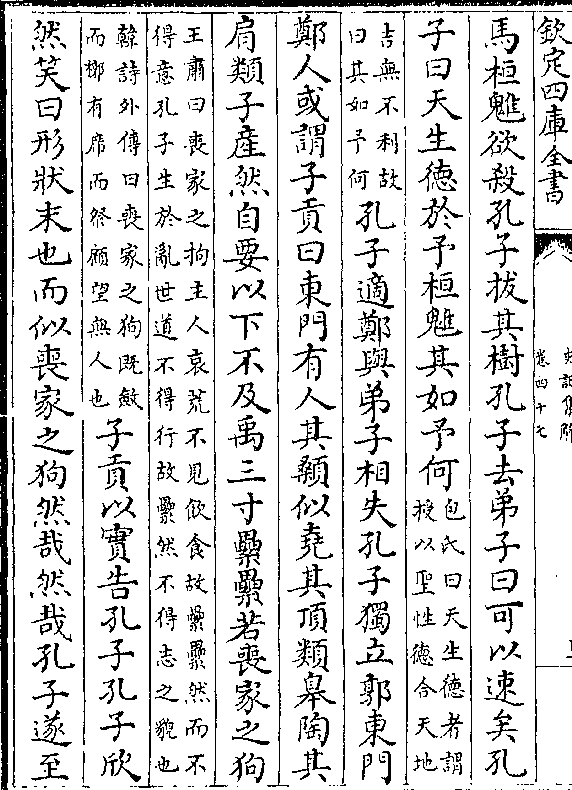 欽定四庫全書
史記集解
卷四十七
馬桓魋欲殺孔子拔其樹孔子去弟子曰可以速矣孔
子曰天生德於予桓魋其如予何
包氏曰天生德者謂
授以聖性德合天地
吉無不利故
曰其如予何
孔子適鄭與弟子相失孔子獨立郭東門
鄭人或謂子貢曰東門有人其顙似堯其頂類皋陶其
肩類子產然自要以下不及禹三寸纍纍若喪家之狗
王肅曰喪家之拘主人哀荒不見飲食故纍纍然而不
得意孔子生於亂世道不得行故纍然不得志之貌也
韓詩外傳曰喪家之狗既斂
而槨有席而祭顧望無人也
子貢以實告孔子孔子欣
然笑曰形狀末也而似喪家之狗然哉然哉孔子遂至